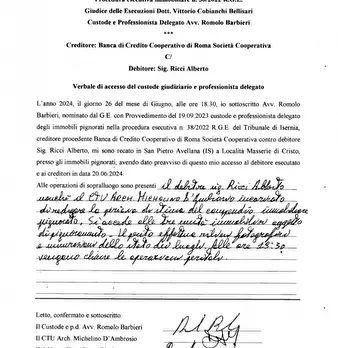 Procedura esecutiva immobiliare n. 38/2022 R.G.E.
Giudice delle Esecuzioni Dott. Vittorio Cobianchi Bellisari
Custode e Professionista Delegato Avv. Romolo Barbieri
***
Creditore: Banca di Credito Cooperativo di Roma Società Cooperativa
C/
Debitore: Sig. Ricci Alberto
Verbale di accesso del custode giudiziario e professionista delegato
L'anno 2024, il giorno 26 del mese di Giugno, alle ore 18.30, io sottoscritto Avv. Romolo
Barbieri, nominato dal G.E. con Provvedimento del 19.09.2023 custode e professionista delegato
degli immobili pignorati nella procedura esecutiva n. 38/2022 R.G.E. del Tribunale di Isernia,
creditore procedente Banca di Credito Cooperativo di Roma Società Cooperativa contro debitore
Sig. Ricci Alberto, mi sono recato in San Pietro Avellana (IS) a Località Masserie di Cristo,
presso gli immobili pignorati, avendo dato preavviso di questo mio accesso al debitore esecutato
e ai creditori in data 20.06.2024.
Alle operazioni di sopralluogo sono presenti il debitore sig. Ricci Alberto
nonché il CTU Arch. Michelino D'Ambrosio incaricato
di redigere la perizia di stima del compendio immobiliare
pignorato. Si accede alle tre unità immobiliari oggetto
di pignoramento. Il perito effettua rilievi fotografici
e misurazioni dello stato dei luoghi. Alle ore 19:30
vengono chiuse le operazioni peritali.
Letto, confermato e sottoscritto
Il Custode e p.d Avv. Romolo Barbieri
Il CTU Arch. Michelino D'Ambrosio